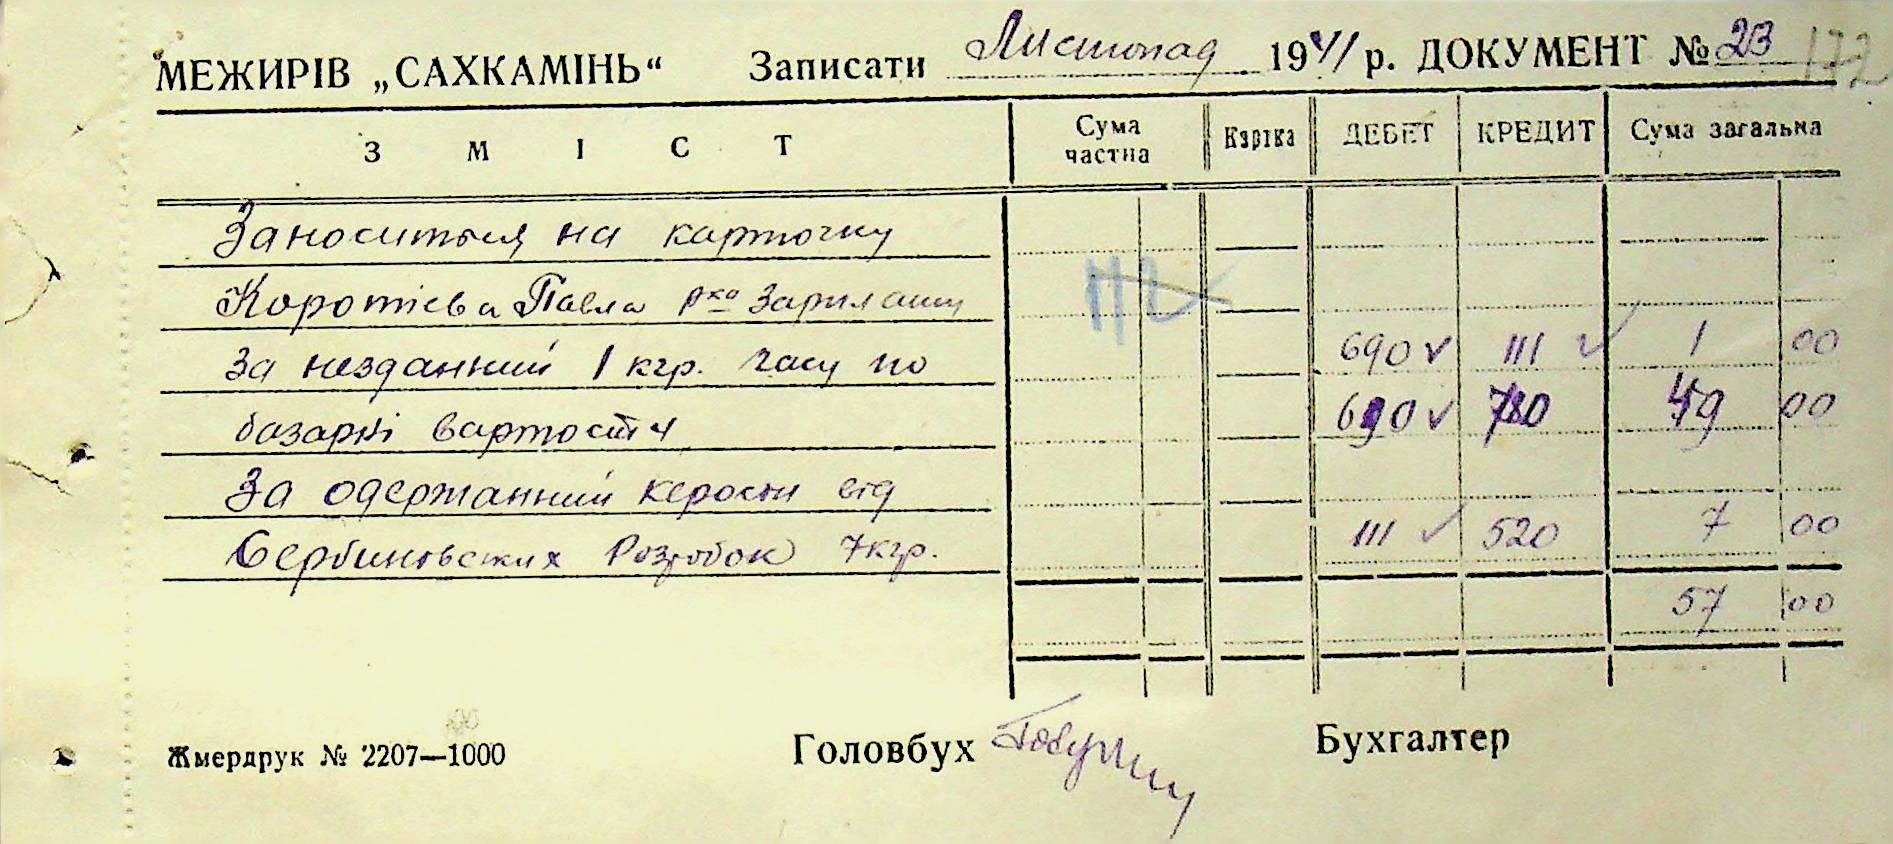 МЕЖИРІВ „САХКАМІНЬ“ Записати Листопад 1941 р. ДОКУМЕНТ № 23 172
ЗМІСТ Сума частна Картка ДЕБЕТ КРЕДИТ Сума загальна
Заноситься на карточку
Коротієва Павла рха Зарплати
за незданний 1 кгр. часу по 690 III 1 00
базарні вартости 690 49 00
За одержанний керосин від
Сербиновских Розробок 7 кгр. III 520 7 00
57 00
Жмердрук № 2207—1000 Головбух Бухгалтер